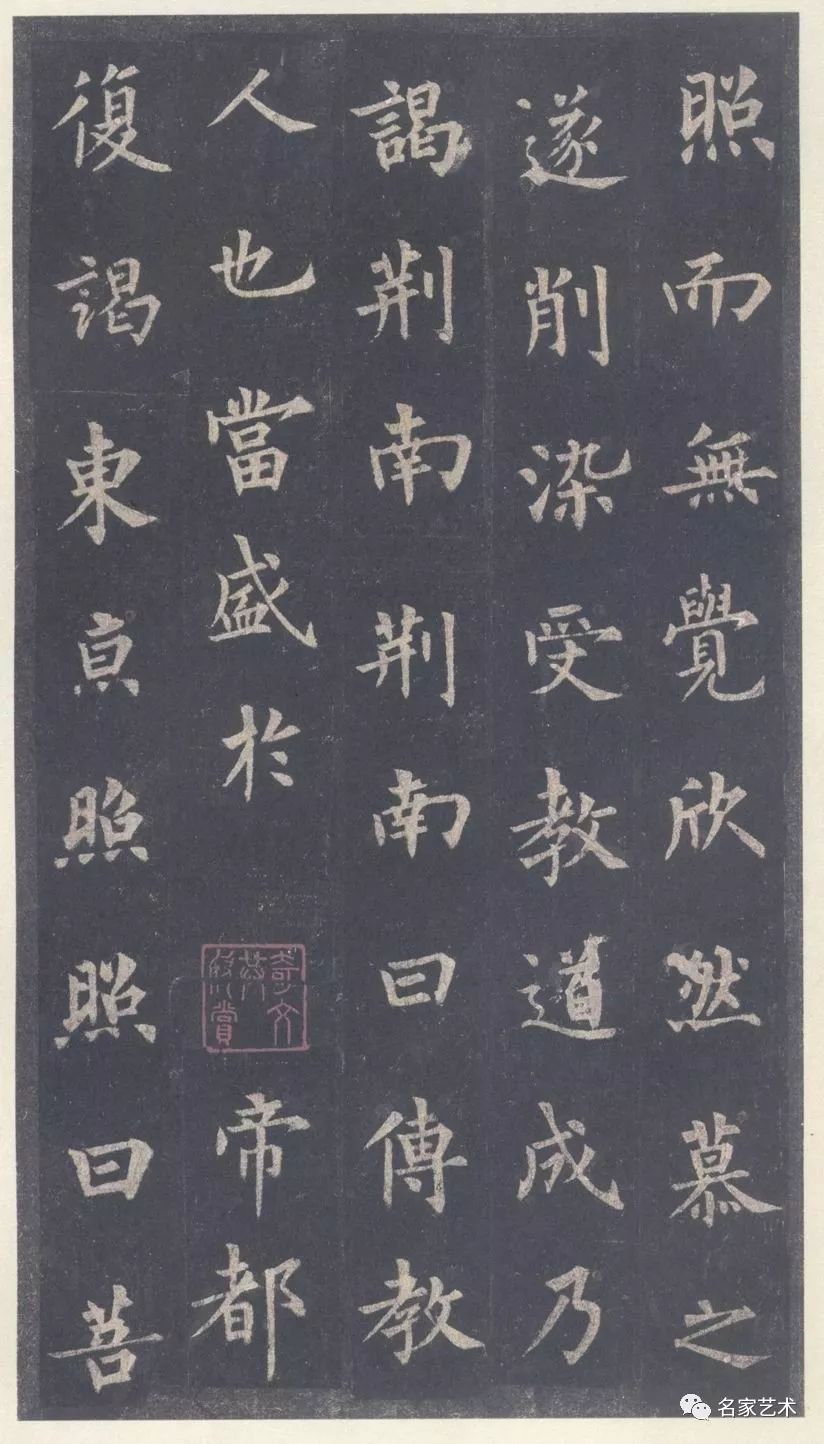 照而無覺欣然慕之
遂削染受教道成乃
謁荆南荆南曰傳教
人也當盛於帝都
復謁東京照照曰菩
奇文共欣賞
名家艺术